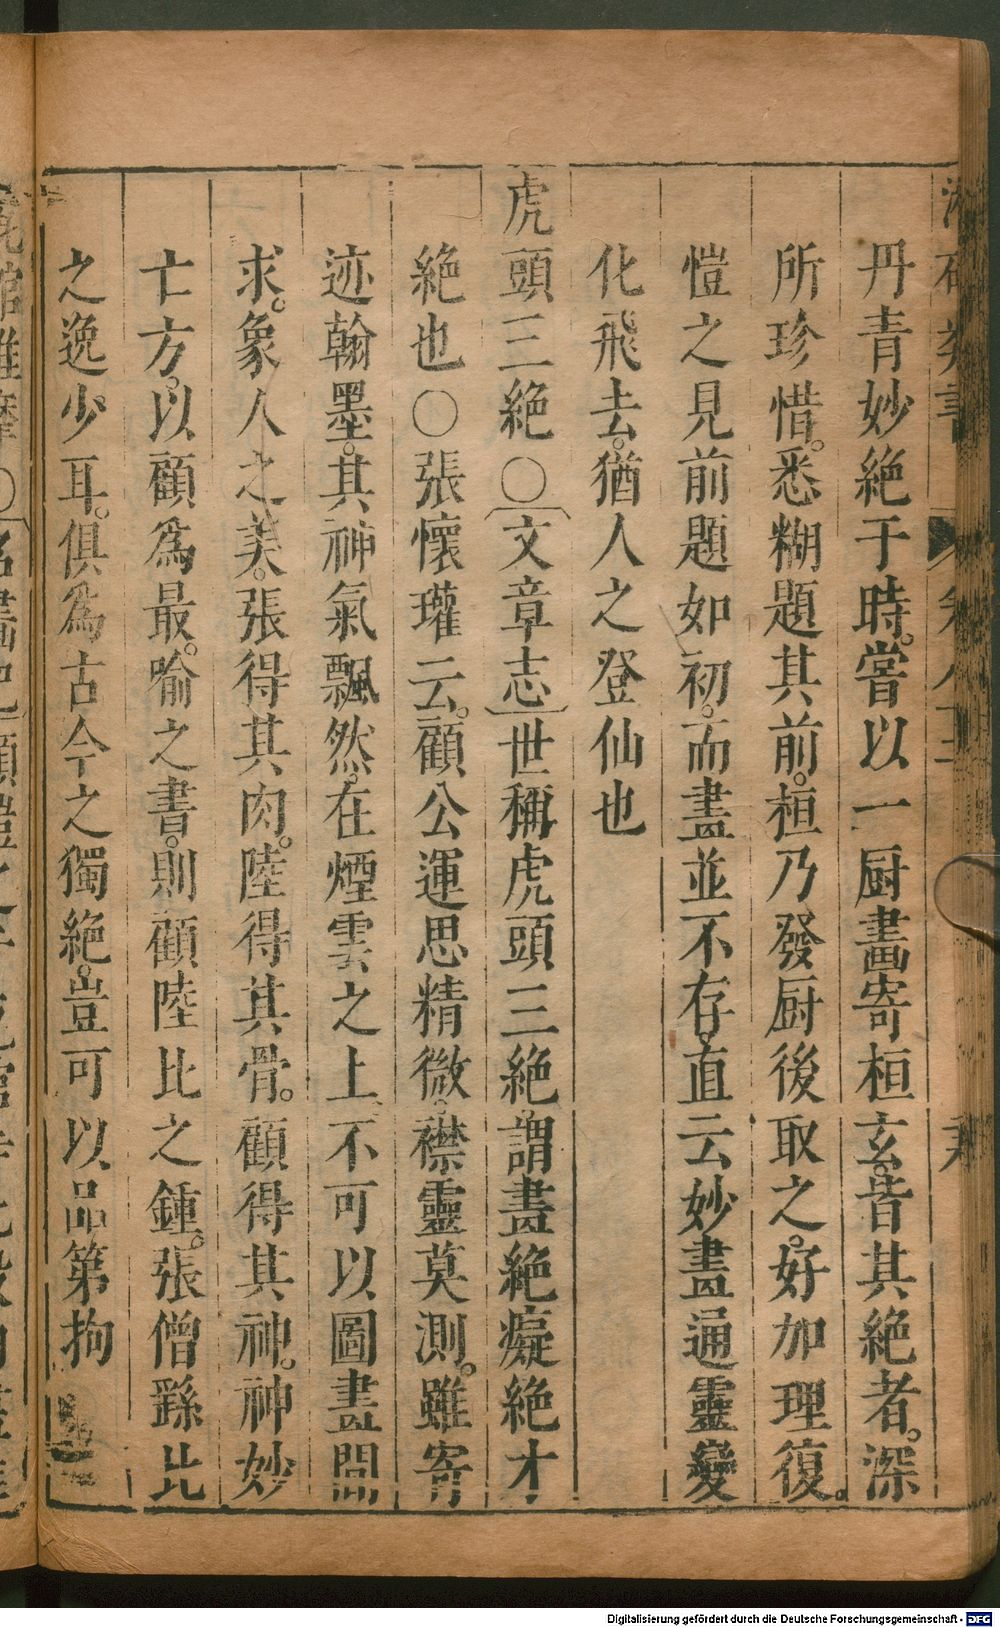 丹青妙絶于時。嘗以一厨畵寄桓玄。皆其絶者。深
所珍惜。悉糊題其前。桓乃發厨後取之。好加理復。
愷之見前題如初。而畵並不存。直云妙畵通靈變
化飛去。猶人之登仙也
虎頭三絶〇〔文章志〕世稱虎頭三絶謂畵絶癡絶才
絶也〇張懷瓘云。顧公運思精微。襟靈莫測。雖寄
迹翰墨。其神氣飄然。在煙雲之上不可以圖畵間
求。象人之美。張得其肉。陸得其骨。顧得其神。神妙
亡方。以顧爲最。喻之書。則顧陸比之鍾。張僧繇比
之逸少耳。俱爲古今之獨絶。豈可以品第拘
Digitalisierung gefördert durch die Deutsche Forschungsgemeinschaft - DFG